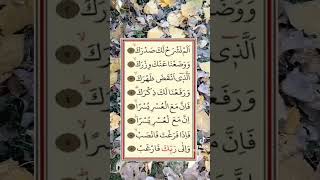 اَلَمْ نَشْرَحْ لَكَ صَدْرَكَ
وَوَضَعْنَا عَنْكَ وِزْرَكَ
اَلَّذٖٓى اَنْقَضَ ظَهْرَكَ
وَرَفَعْنَا لَكَ ذِكْرَكَ
فَاِنَّ مَعَ الْعُسْرِ يُسْرًا
اِنَّ مَعَ الْعُسْرِ يُسْرًا
فَاِذَا فَرَغْتَ فَانْصَبْ
وَاِلٰى رَبِّكَ فَارْغَبْ